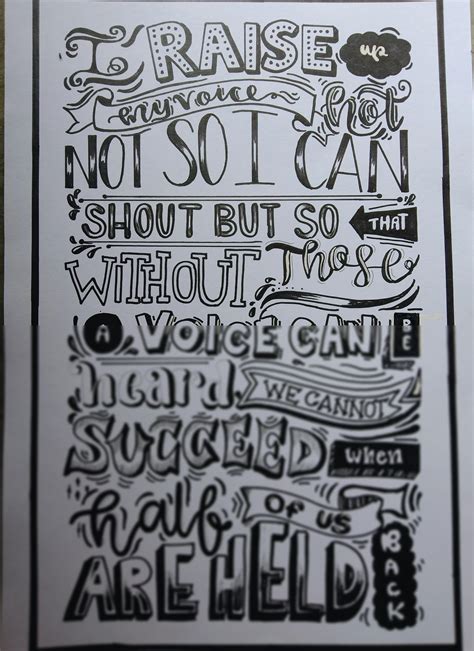 I RAISE up
my voice
NOT SO I CAN
SHOUT BUT SO THAT
WITHOUT Those
A VOICE CAN BE
heard. WE CANNOT
SUCCEED when
half OF US
ARE HELD BACK